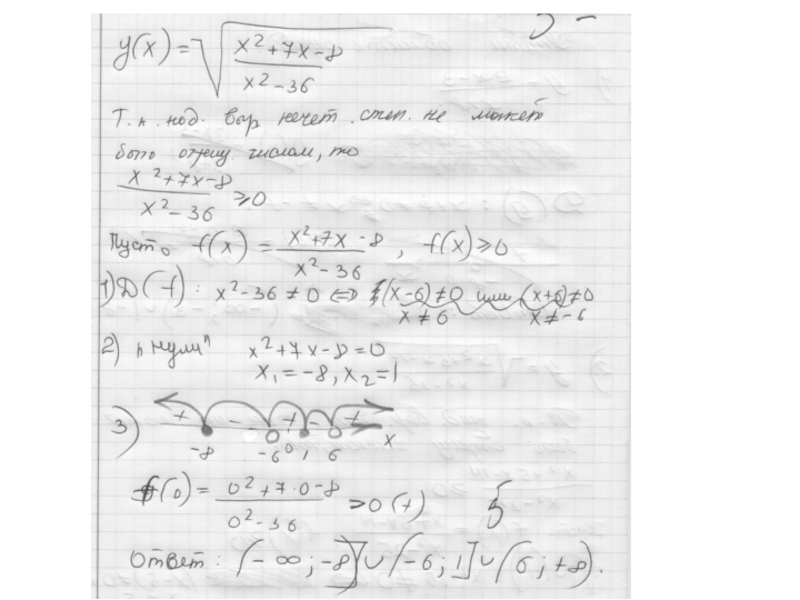 y(x) = √((x²+7x-8)/(x²-36))
Т.к. под. выр нечет. степ. не может
быть отриц. числом, то
(x²+7x-8)/(x²-36) ≥ 0
Пусть f(x) = (x²+7x-8)/(x²-36), f(x) ≥ 0
1) D(f): x²-36 ≠ 0 ⇔ (x-6) ≠ 0 или (x+6) ≠ 0
x ≠ 6 x ≠ -6
2) "нули" x²+7x-8=0
x₁ = -8, x₂ = 1
3) + - + - +
-8 -6 0 1 6 x
f(0) = (0²+7·0-8)/(0²-36) > 0 (+) 5
Ответ: (-∞; -8] ∪ (-6; 1] ∪ (6; +∞).